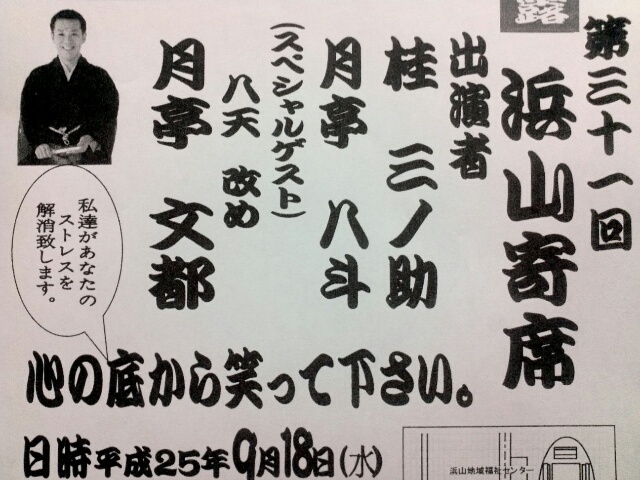 第三十一回
浜山寄席
出演者
桂 三ノ助
月亭 八斗
(スペシャルゲスト)
八天 改め
月亭 文都
私達があなたの
ストレスを
解消致します。
心の底から笑って下さい。
日時平成25年9月18日(水)
浜山地域福祉センター